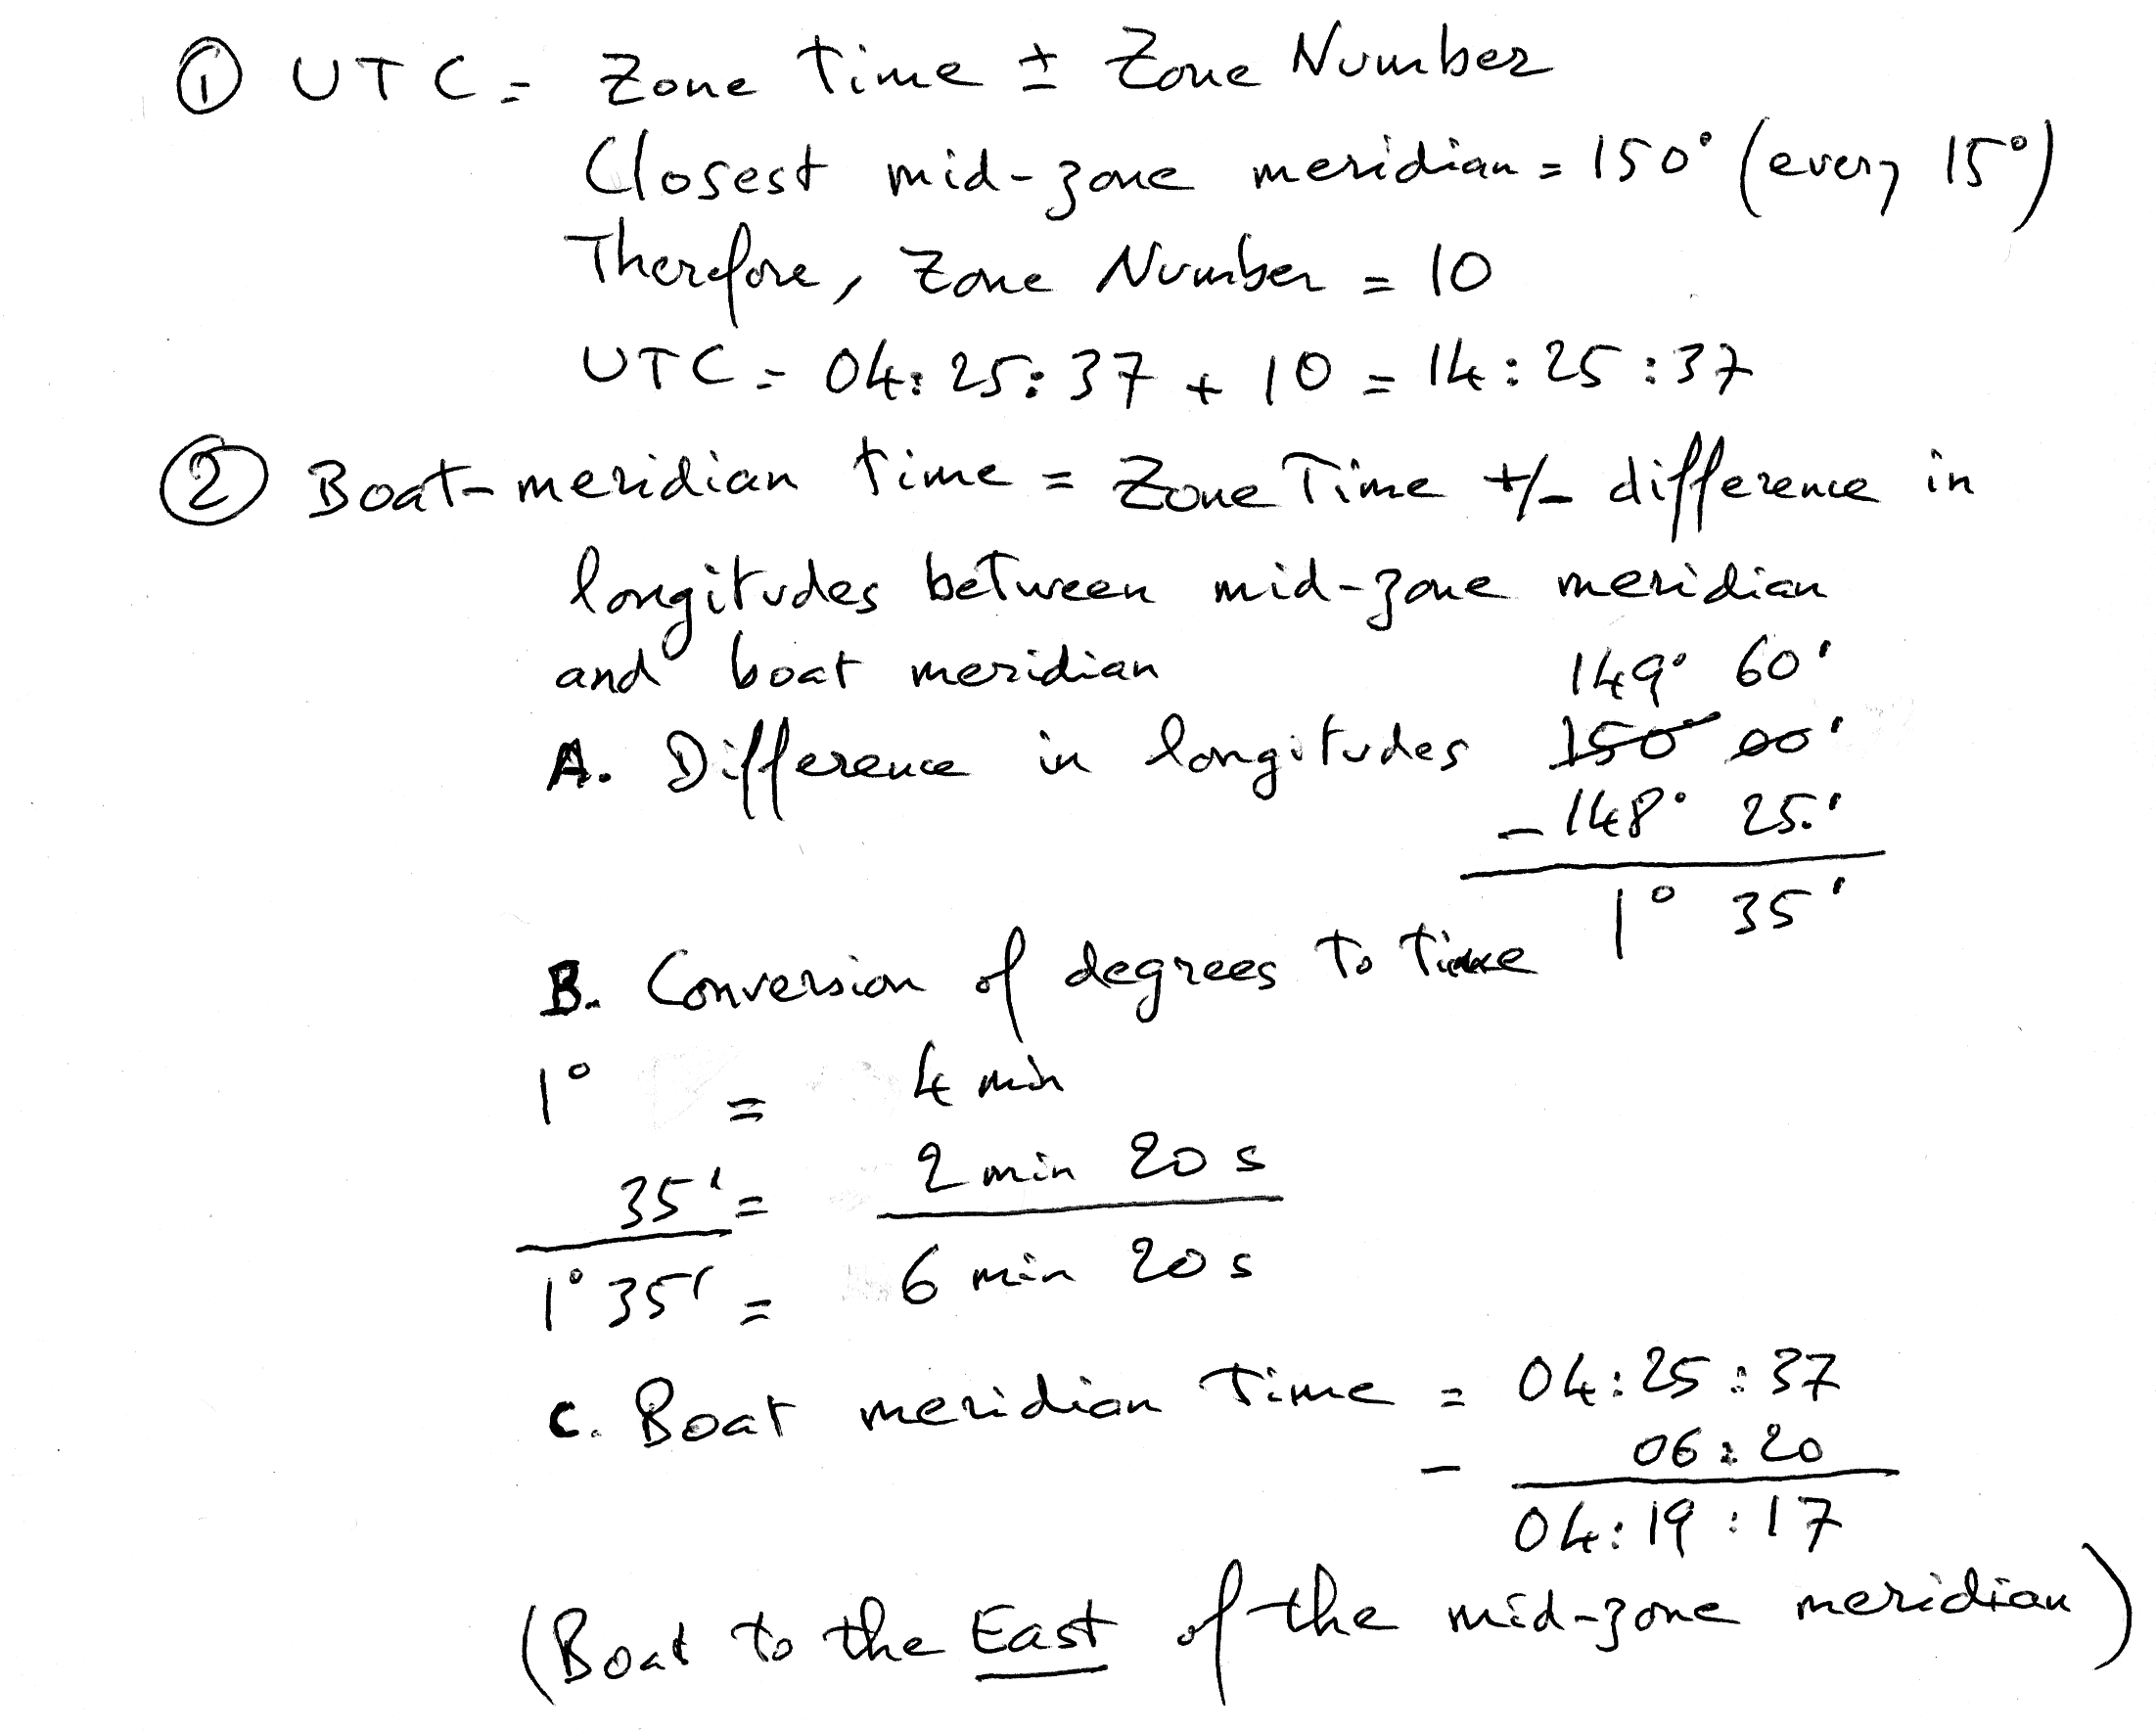 ① UTC = Zone Time ± Zone Number
Closest mid-zone meridian = 150° (every 15°)
Therefore, Zone Number = 10
UTC = 04:25:37 + 10 = 14:25:37
② Boat-meridian time = Zone Time +/- difference in
longitudes between mid-zone meridian
and boat meridian 149° 60'
A. Difference in longitudes 150° 00'
- 148° 25.'
1° 35'
B. Conversion of degrees to time
1° = 4 min
35' = 2 min 20 s
1° 35' = 6 min 20 s
C. Boat meridian Time = 04:25:37
- 06:20
04:19:17
(Boat to the East of the mid-zone meridian)